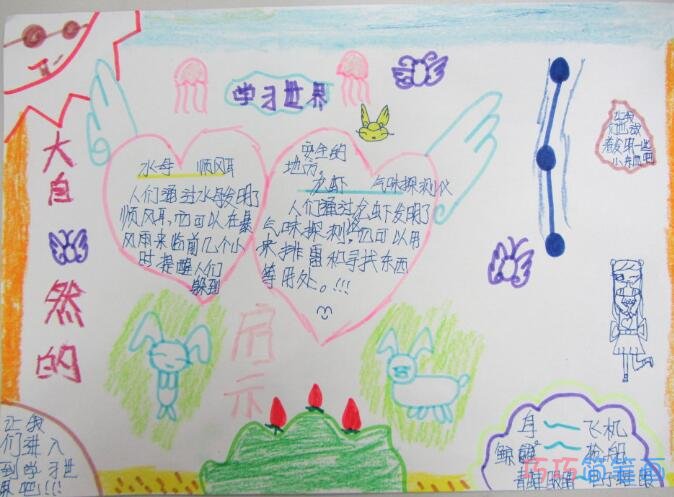 学习世界
大自然的
启示
水母 顺风耳
人们通过水母发明了
顺风耳，它可以在暴
风雨来临前几个小
时提醒人们
躲到
安全的
地方。
龙虾 气味探测仪
人们通过龙虾发明了
气味探测仪，它可以用
来排雷和寻找东西
等用处。!!!
让我
们进入
到学习世
界吧!!!
鸟 飞机
巧巧简笔画